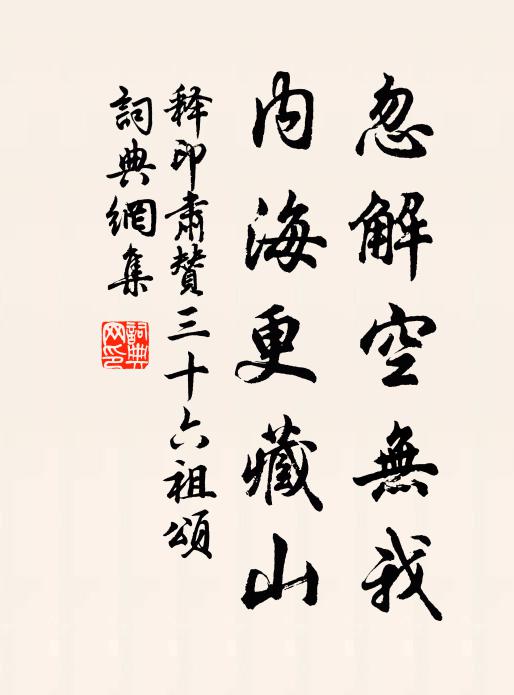 忽解空無我
内海更藏山
释印肃赞三十六祖頌
詞典網集
詞典
网印